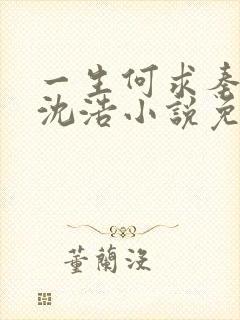 一生何求秦
沈浩小說免
董蘭沒